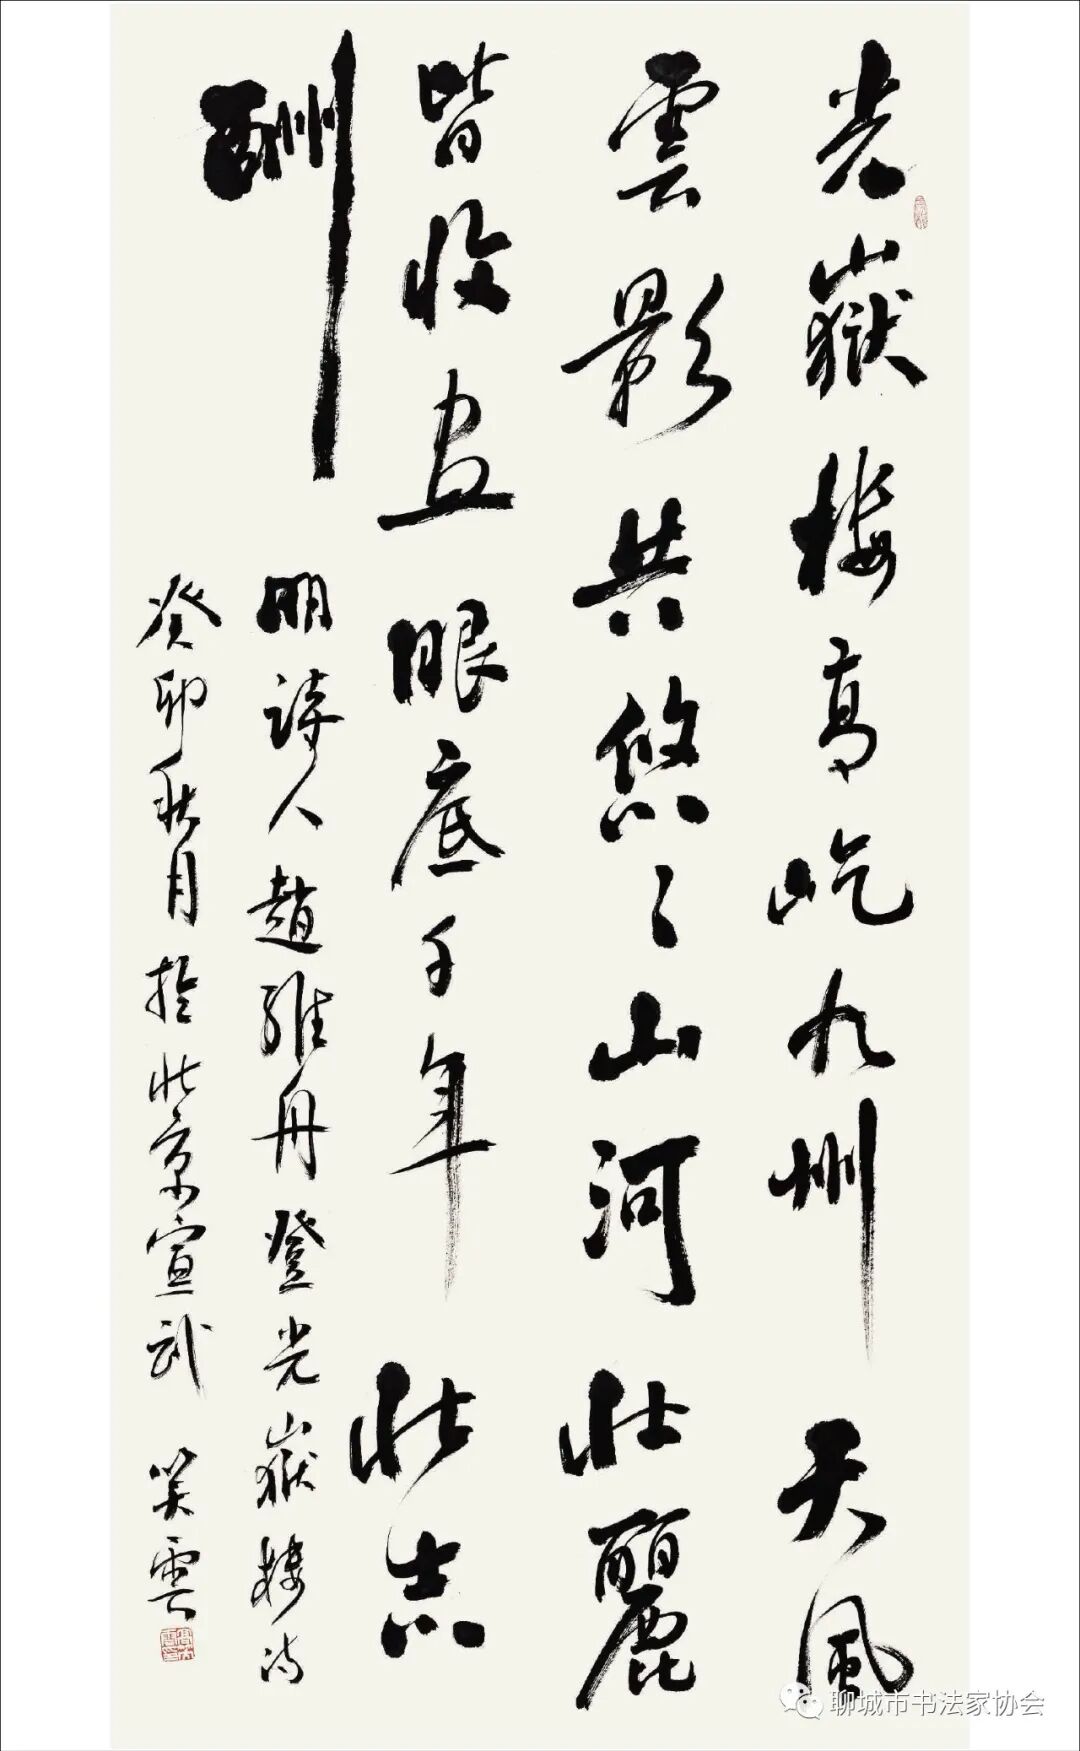 光嶽樓高屹九州天風
雲影共悠々山河壯麗
皆收盡眼底千年壯志
酬
明詩人趙維丹登光嶽樓詩
癸卯秋月於北京宣武 笑雲
聊城市书法家协会